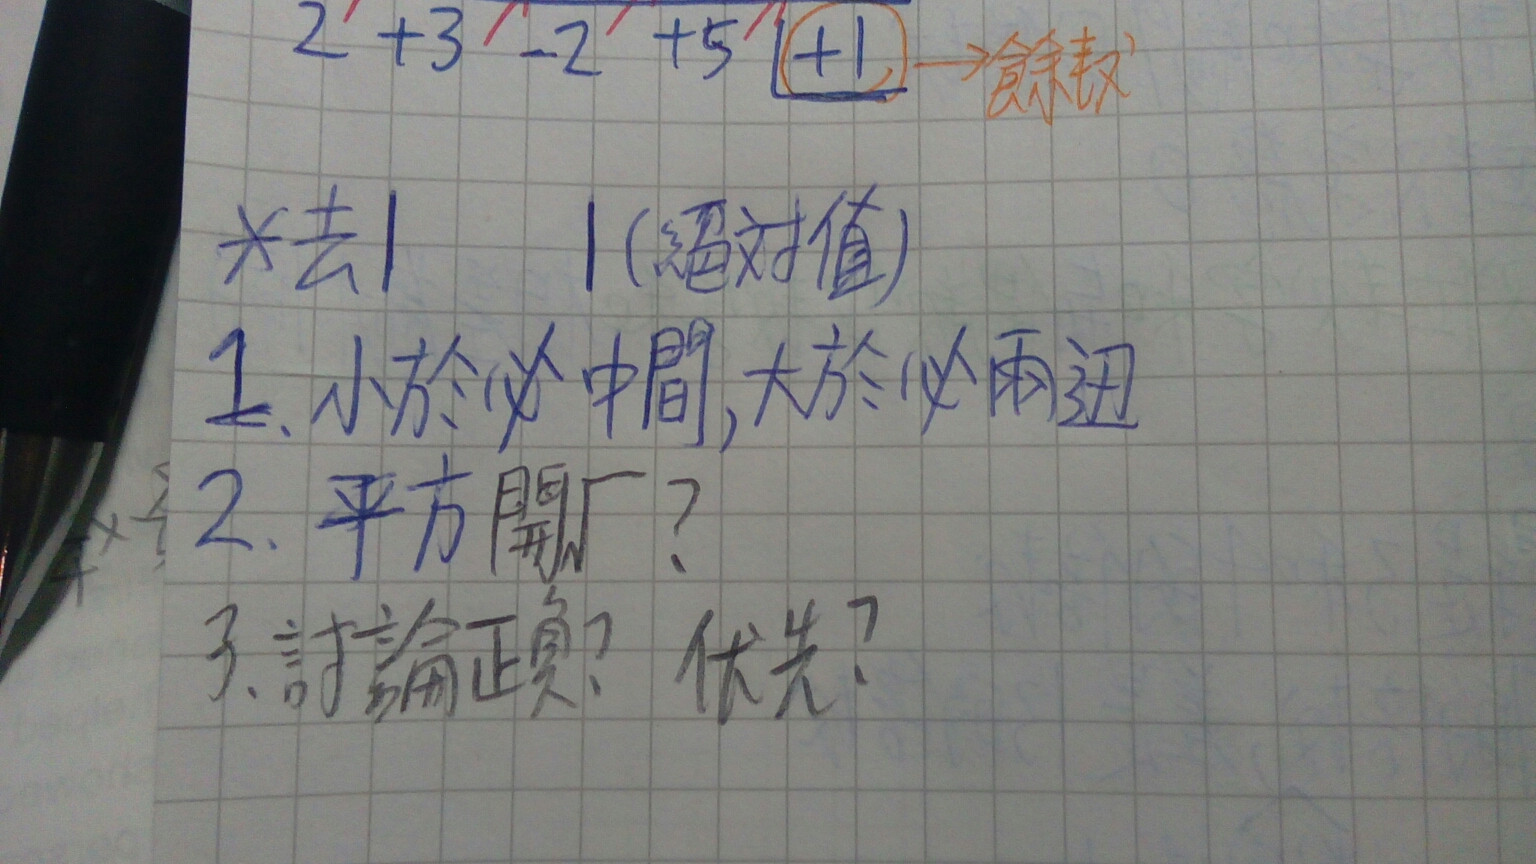 2 +3 -2 +5 +1 →餘数
※去| |(絕対值)
1. 小於必中間,大於必兩边
2. 平方開√?
3. 討論正負? 优先?